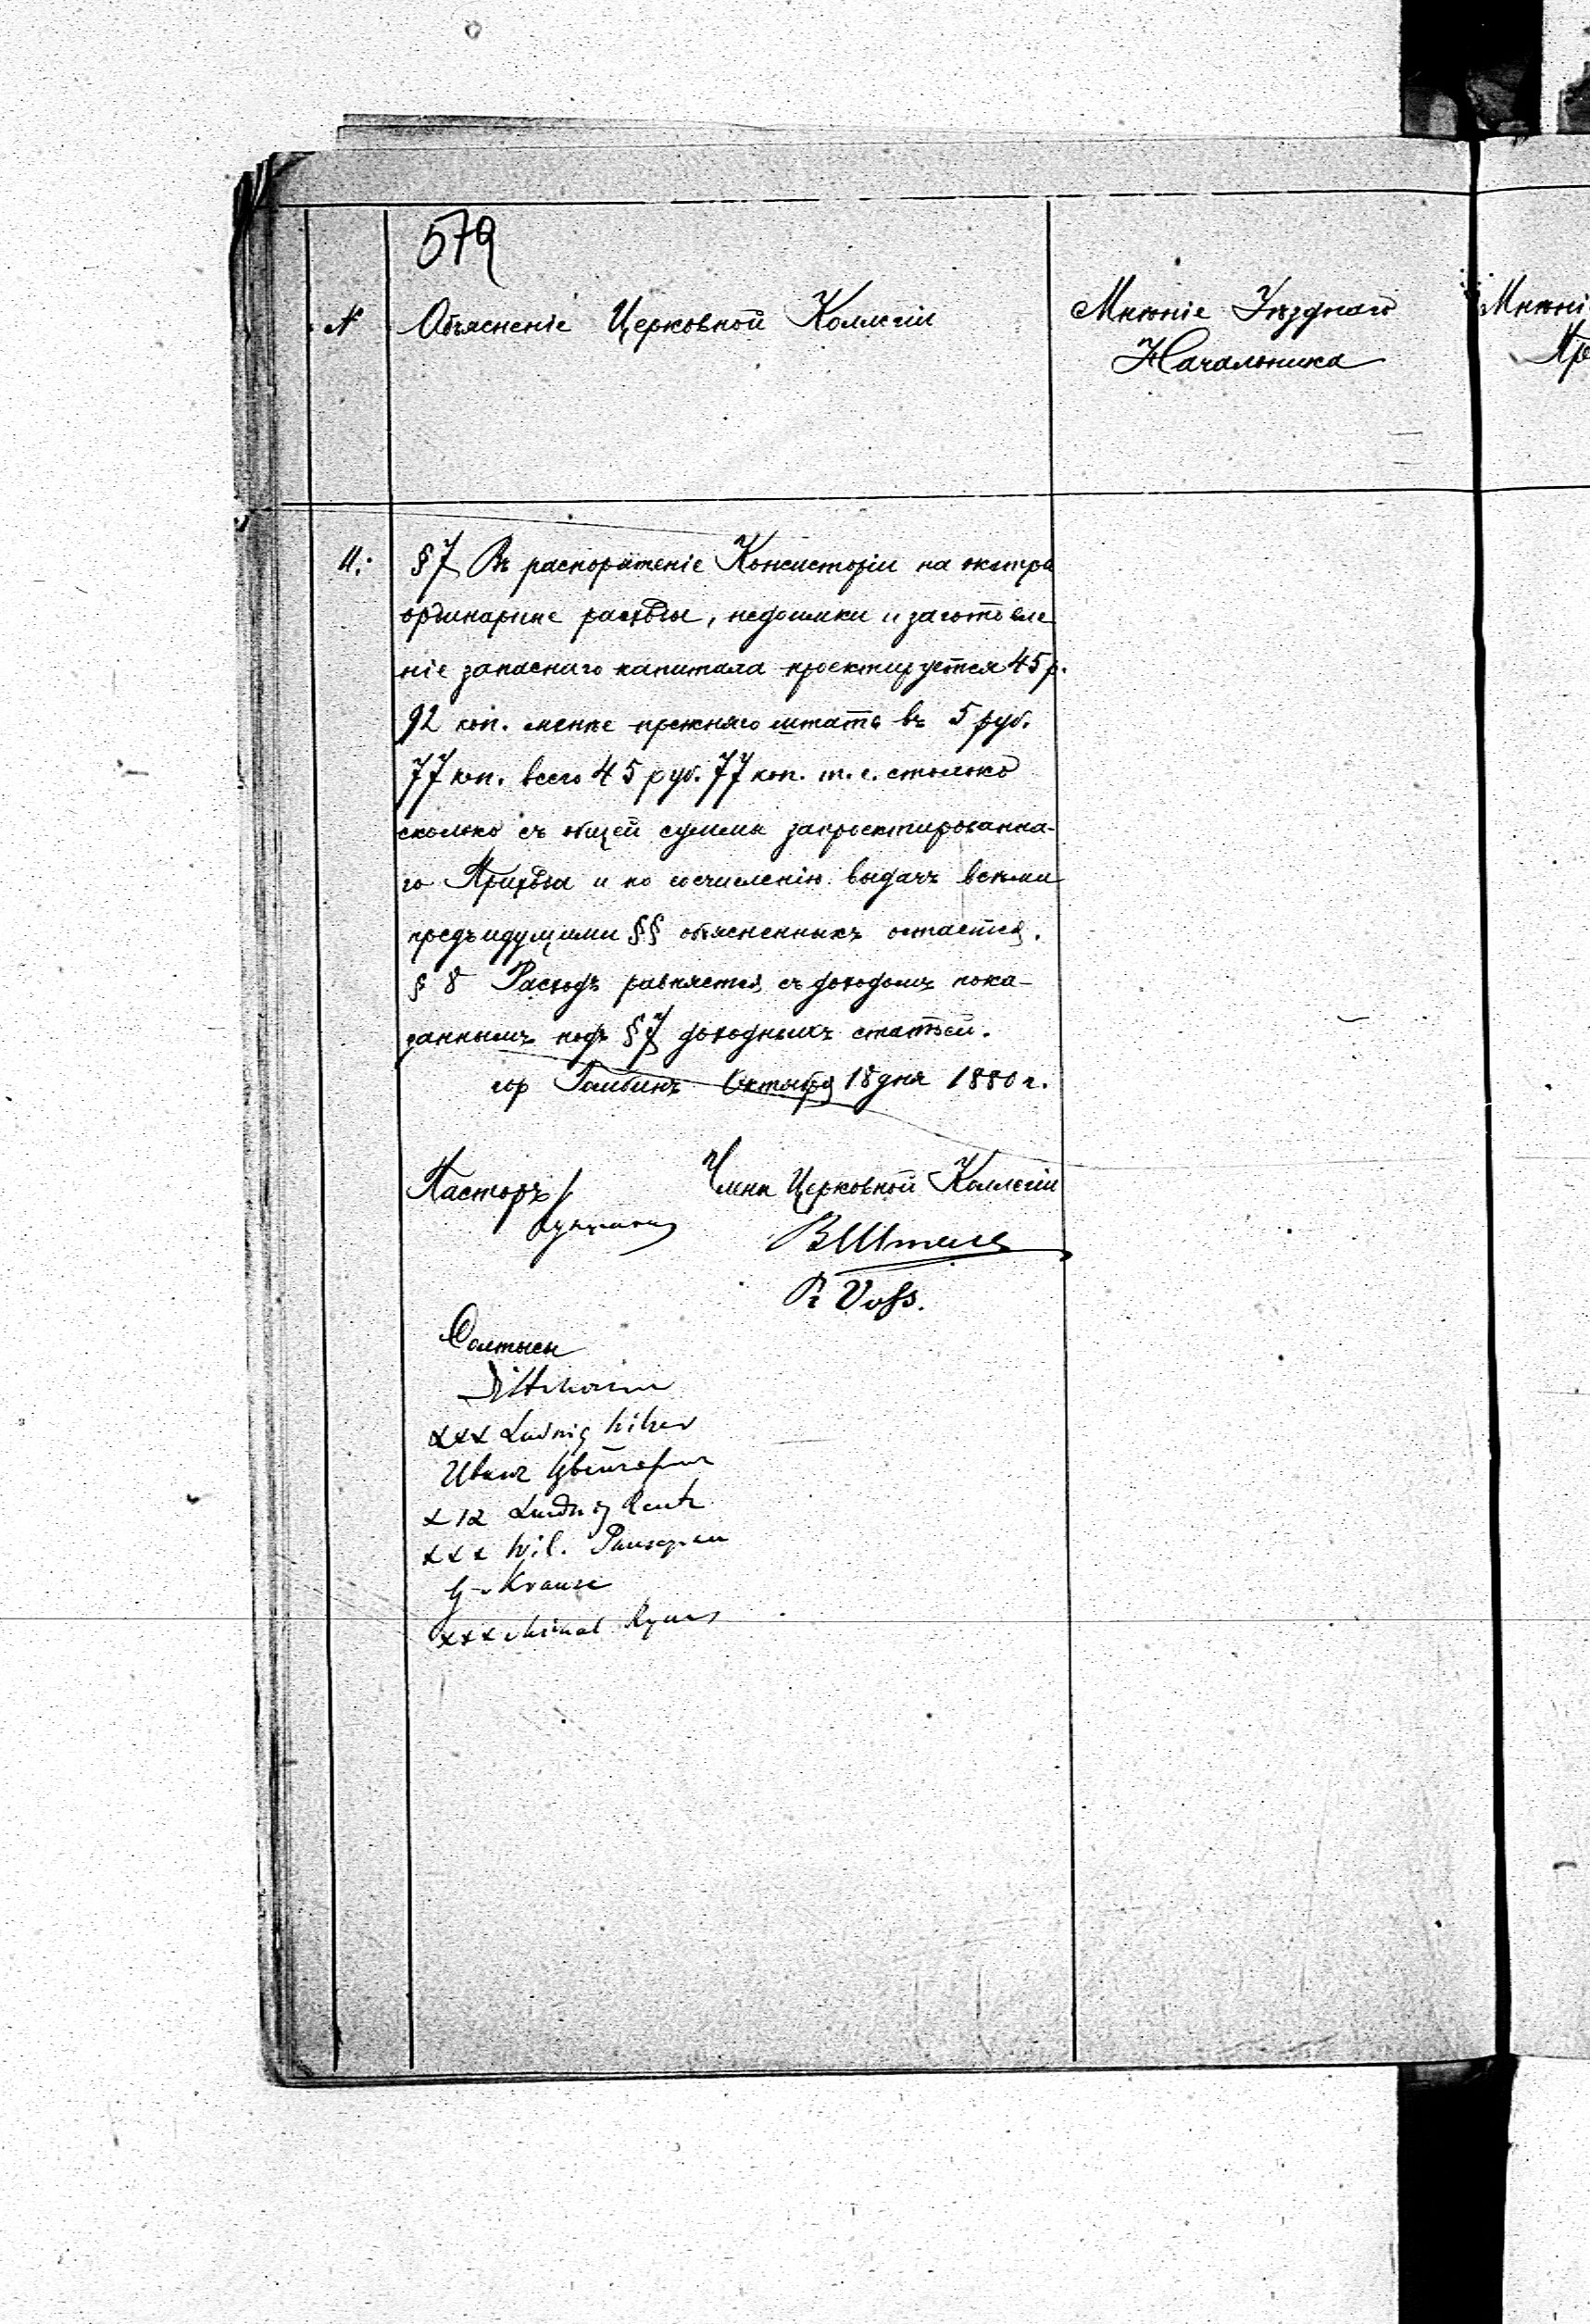 579
№ Объясненіе Церковной Коллегіи
Мнѣніе Уѣзднаго
Начальника
Мнѣні
Пр
11. §7 Въ распоряженіе Консисторіи на экстра
ординарные расходы, недоимки и заготовле
ніе запаснаго капитала проектируется 45 р.
92 коп. менѣе прежняго штата въ 5 руб.
77 коп. всего 45 руб. 77 коп. т. е. столько
сколько съ общей суммы запроектированна-
го Прихода и по исчисленію выдачъ всѣми
предъидущими §§ объясненныхъ остается.
§ 8 Расходъ равняется съ доходомъ пока-
заннымъ подъ §7 доходныхъ статьей.
гор Гомбинъ Октября 18 дня 1880 г.
Пасторъ
Члены Церковной Коллегіи
R Voss.
Солтысы
xxx Ludwig
Иванъ
Ludwig
xxx Wil.
G. Krause
xxx